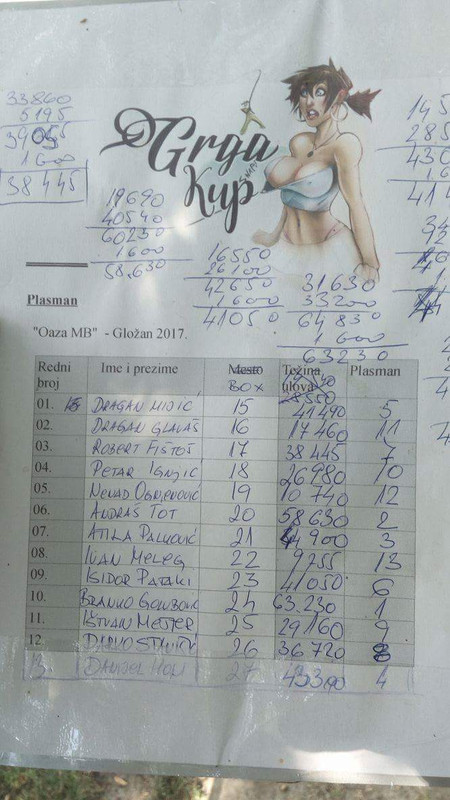 33860
5195
39055
1600
38445
Grga
Kup
145
285
430
41
19690
40540
60230
1.600
58.630
16550
26100
42650
1600
41050
31.630
33200
64.830
1600
63230
Plasman
"Oaza MB" - Gložan 2017.
Redni broj Ime i prezime Mesto BOX Težina ulova Plasman
01. DRAGAN 15 41490 5
02. DRAGAN GLAVAŠ 16 17460 11
03. ROBERT FIŠTOŠ 17 38445 7
04. PETAR IGNJIĆ 18 26980 10
05. NENAD OGNJENOVIĆ 19 10740 12
06. ANDRAŠ TOT 20 58630 2
07. ATILA PALKOVIĆ 21 44900 3
08. IVAN MELEG 22 9255 13
09. ISIDOR PATAKI 23 41050 6
10. BRANKO 24 63.230 1
11. IŠTVAN MESTER 25 29160 9
12. DARKO 26 36720 8
13 27 4